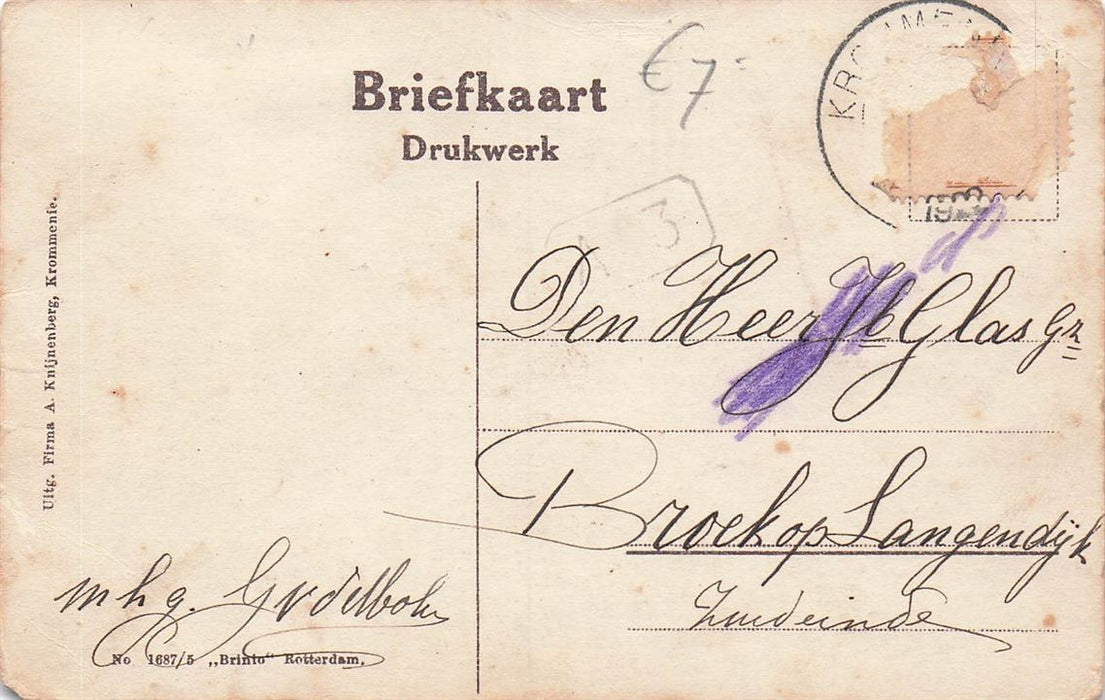 Briefkaart
€ 7-
Drukwerk
3
19
Den Heer Jb Glas Gz
Broek op Langendijk
Zuideinde
Uitg. Firma A. Knijnenberg, Krommenie.
m h g.
No 1687/5 „Brinio“ Rotterdam.